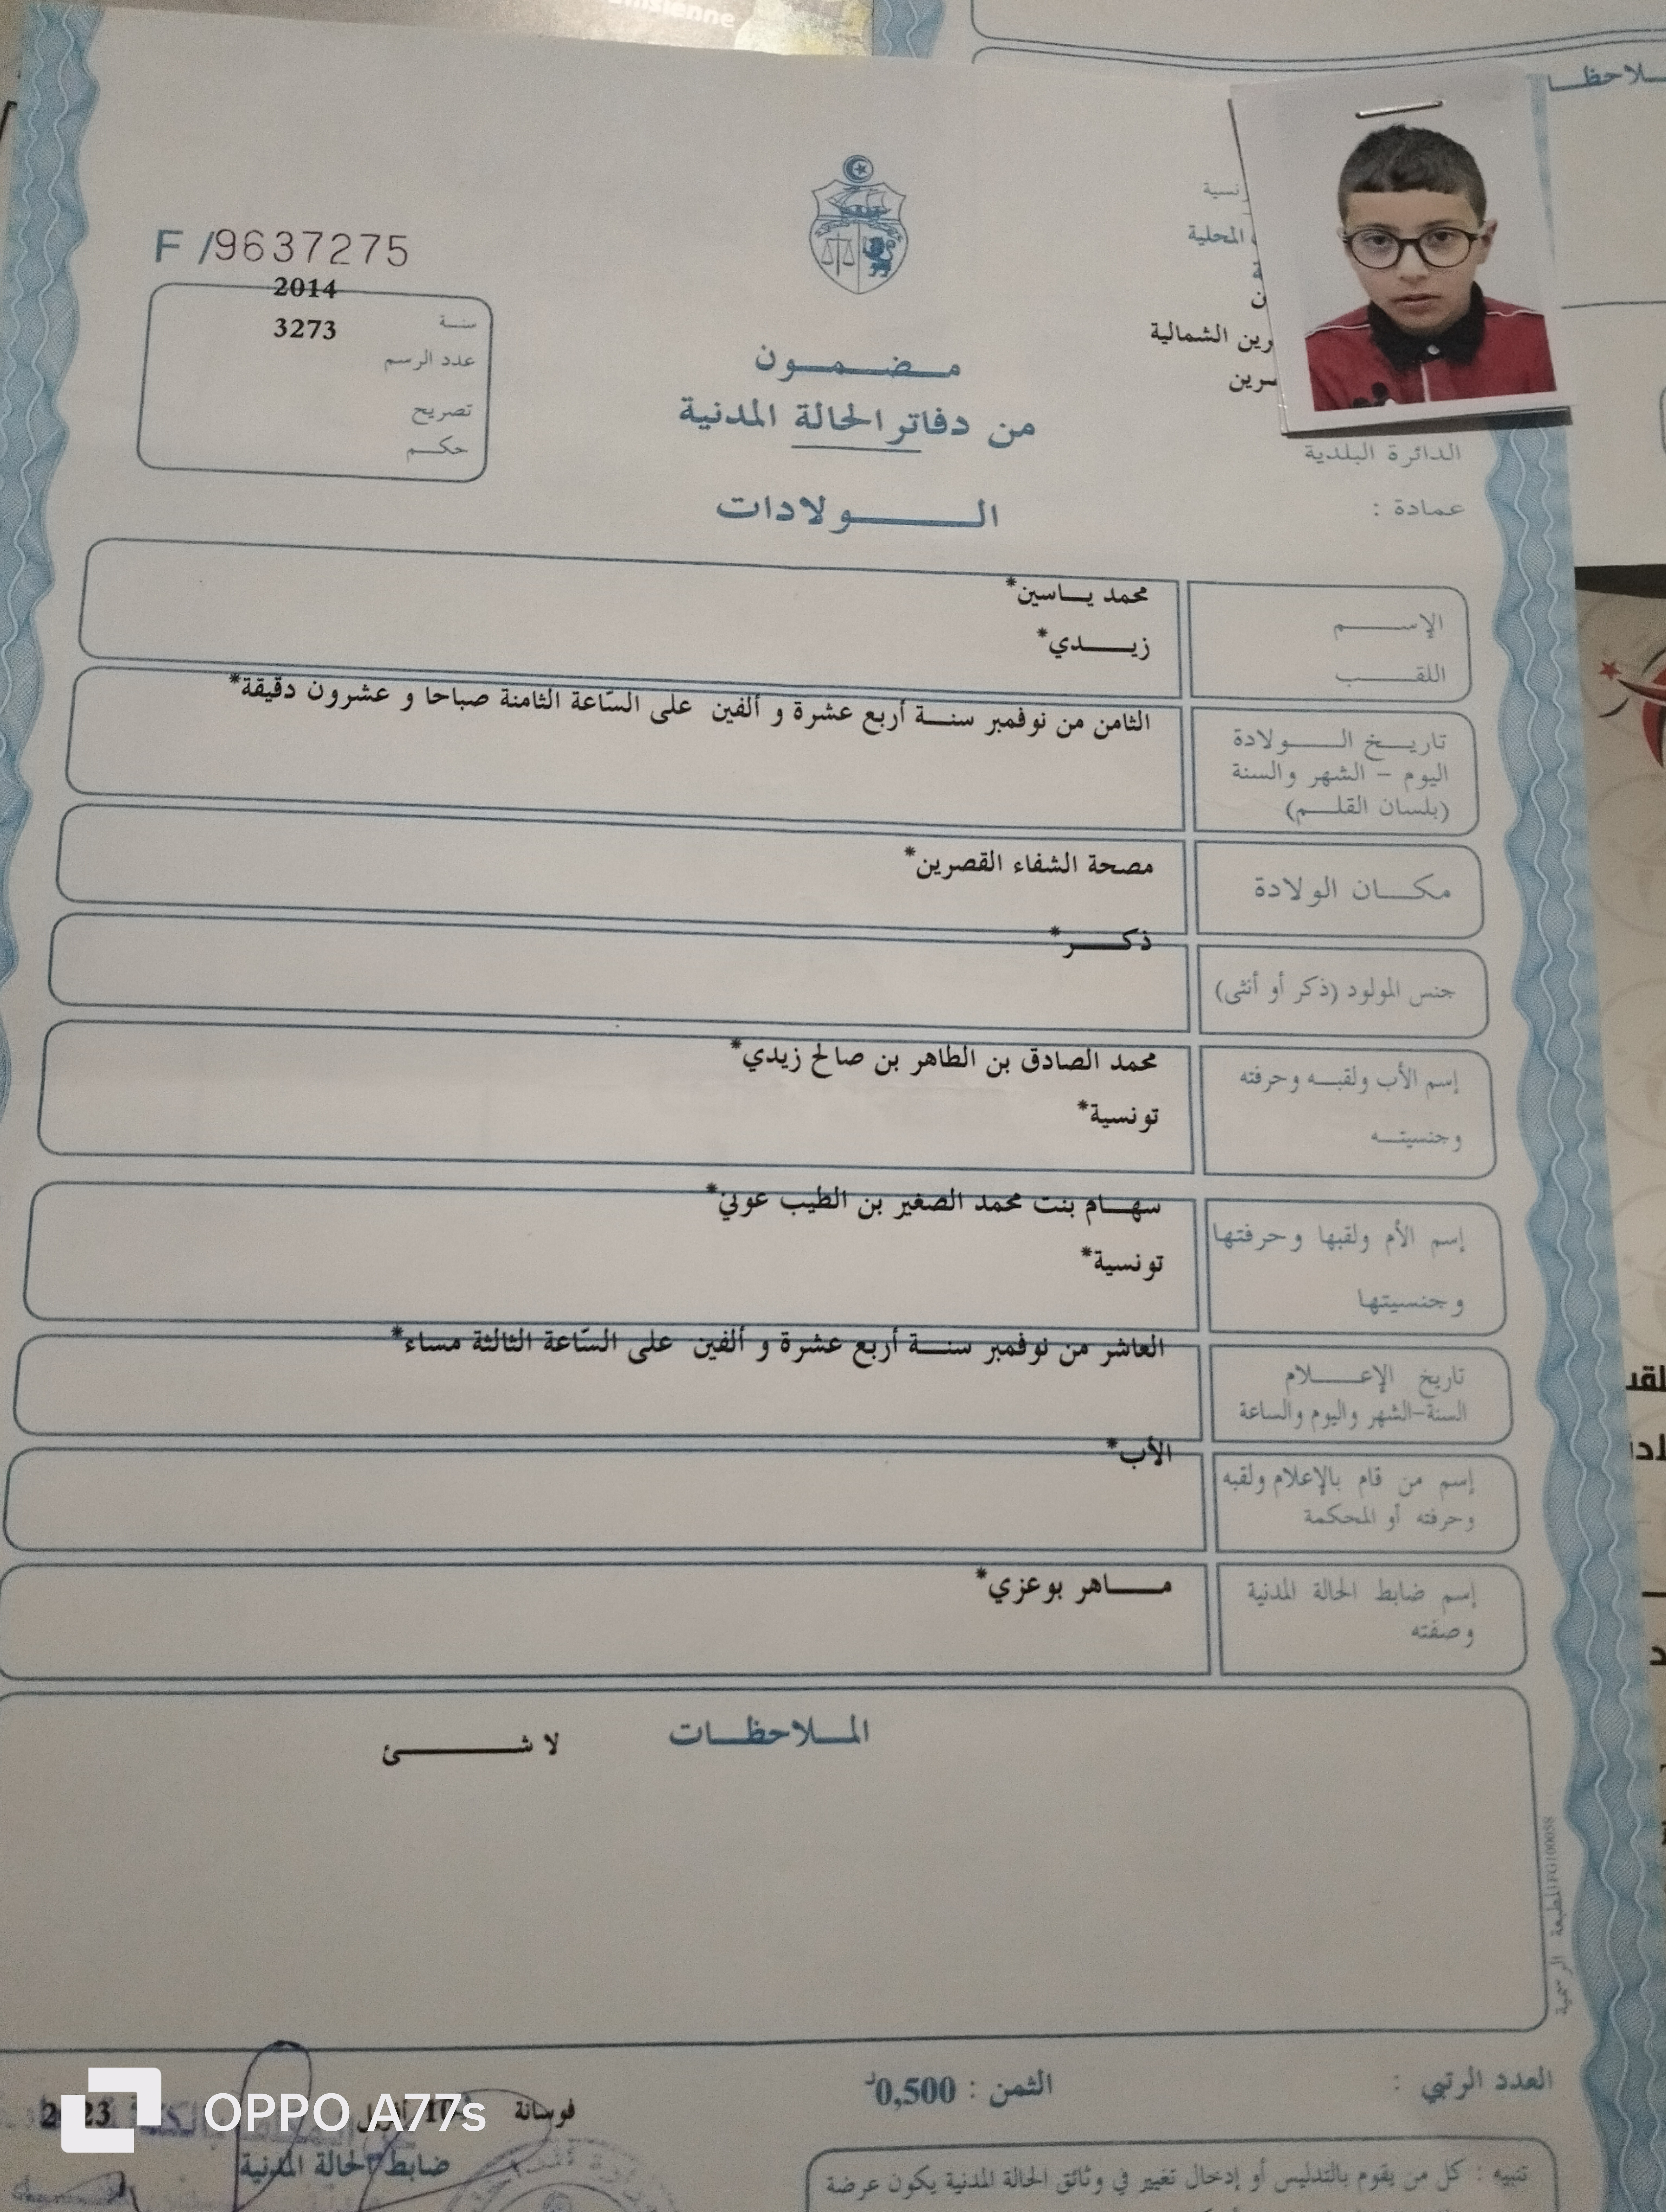 F /9637275
2014
سنة
3273
عدد الرسم
تصريح
حكم
المحلية
الشمالية
مضمون
من دفاتر الحالة المدنية
الدائرة البلدية
الولادات
عمادة :
الإسم
محمد ياسين*
اللقب
زيدي*
تاريخ الولادة
اليوم - الشهر والسنة
(بلسان القلم)
الثامن من نوفمبر سنة أربع عشرة و ألفين على السّاعة الثامنة صباحا و عشرون دقيقة*
مكان الولادة
مصحة الشفاء القصرين*
جنس المولود (ذكر أو أنثى)
ذكر*
إسم الأب ولقبه وحرفته
وجنسيته
محمد الصادق بن الطاهر بن صالح زيدي*
تونسية*
إسم الأم ولقبها وحرفتها
وجنسيتها
سهام بنت محمد الصغير بن الطيب عوني*
تونسية*
تاريخ الإعلام
السنة-الشهر واليوم والساعة
العاشر من نوفمبر سنة أربع عشرة و ألفين على السّاعة الثالثة مساء*
إسم من قام بالإعلام ولقبه
وحرفته أو المحكمة
الأب*
إسم ضابط الحالة المدنية
وصفته
ماهر بوعزي*
الملاحظات
لا شئ
العدد الرتبي :
الثمن : 0,500د
فوسانة
ضابط الحالة المدنية
تنبيه : كل من يقوم بالتدليس أو إدخال تغيير في وثائق الحالة المدنية يكون عرضة
OPPO A77s